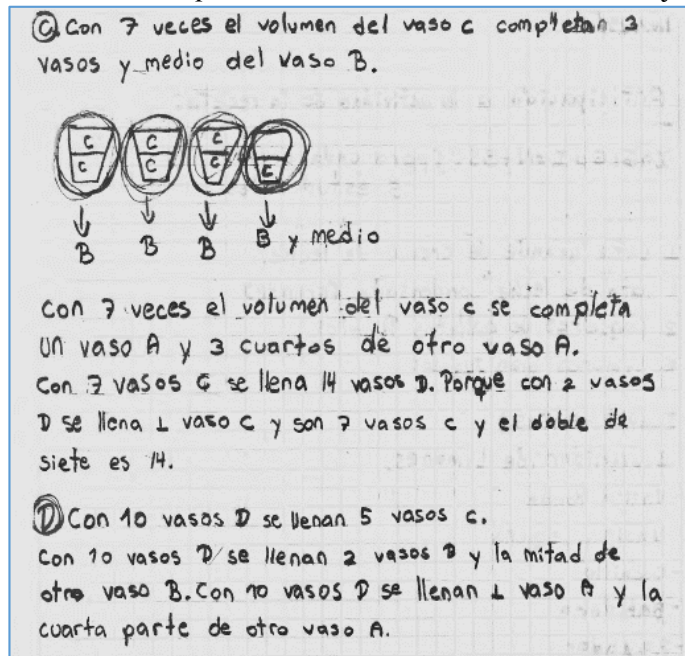 C. Con 7 veces el volumen del vaso c completan 3
vasos y medio del vaso B.
C C C
C C C C
B B B B y medio
con 7 veces el volumen del vaso c se completa
un vaso A y 3 cuartos de otro vaso A.
Con 7 vasos C se llena 14 vasos D. Porque con 2 vasos
D se llena 1 vaso C y son 7 vasos c y el doble de
siete es 14.
D Con 10 vasos D se llenan 5 vasos c.
Con 10 vasos D se llenan 2 vasos B y la mitad de
otro vaso B. Con 10 vasos D se llenan 1 vaso A y la
cuarta parte de otro vaso A.